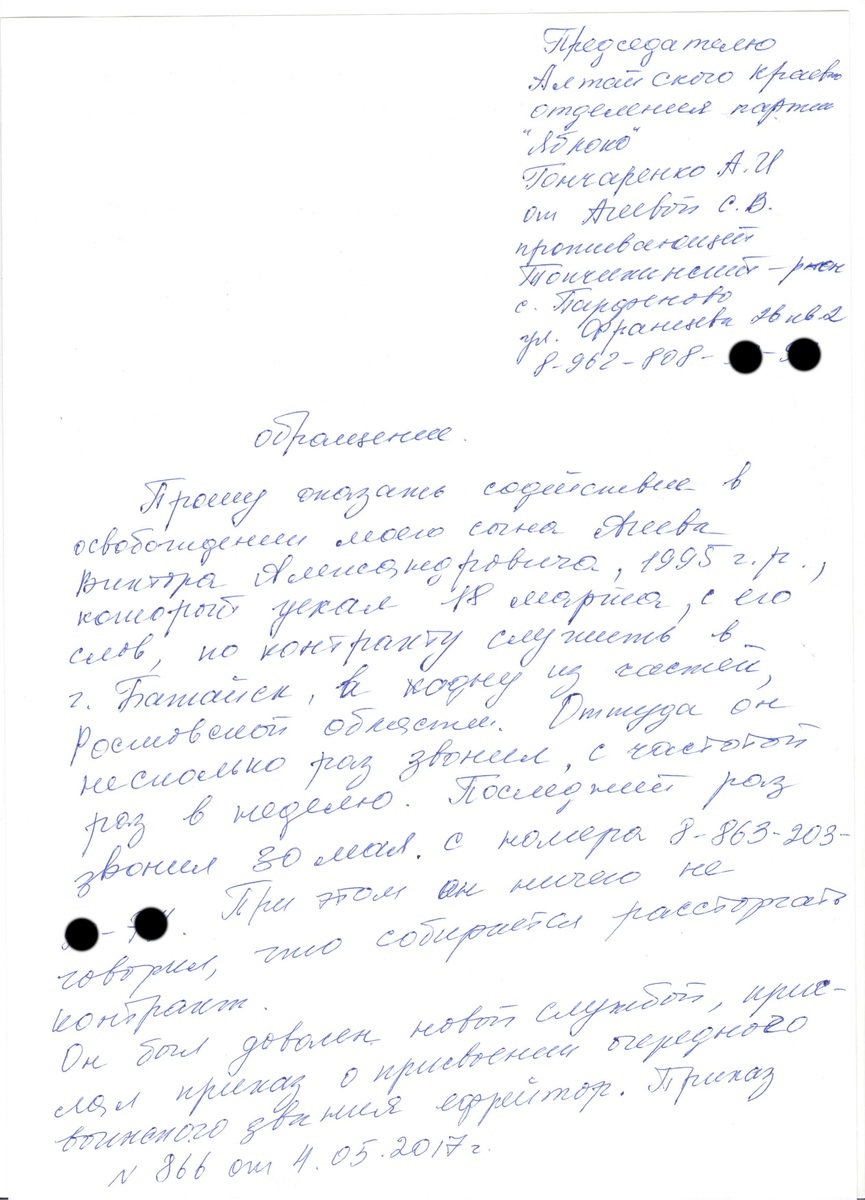 Председателю
Алтайского краев
отделения партии
"Яблоко"
Гончаренко А.И
от Агеевой С.В.
проживающей
Топчихинский-р-он
с. Парфеново
ул. Францева 26 кв 2
8-962-808-
обращение.
Прошу оказать содействие в
освобождении моего сына Агеева
Виктора Александровича, 1995 г.р.,
который уехал 18 марта, с его
слов, по контракту служить в
г. Батайск, в одну из частей,
Ростовской области. Оттуда он
несколько раз звонил, с частотой
раз в неделю. Последний раз
звонил 30 мая. с номера 8-863-203-
При этом он ничего не
говорил, что собирается расторгать
контракт.
Он был доволен новой службой, прис-
лал приказ о присвоении очередного
воинского звания ефрейтор. Приказ
N 866 от 4.05.2017г.